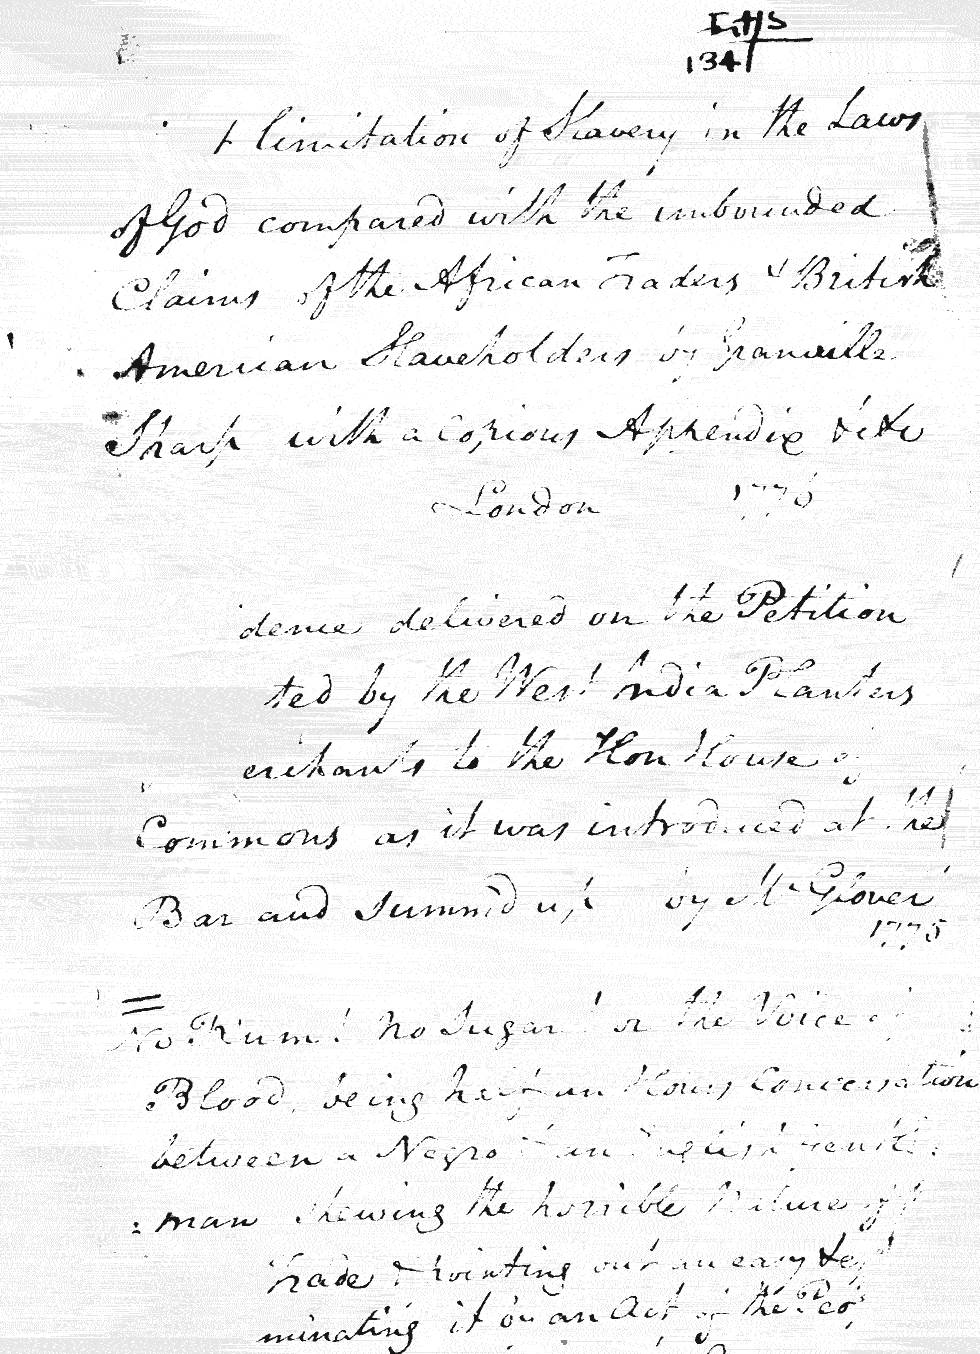 134
+ limitation of Slavery in the Laws
of God compared with the unbounded
Claims of the African Traders & British
American Slaveholders by Granville
Sharp with a Copious Appendix
London 1776
dence delivered on the Petition
ted by the West India Planters
erchants to the Hon House of
Commons as it was introduced at the
Bar and Summ'd up by Mr Glover
1775
No Rum! No Sugar! or the Voice of
Blood, being half an Hours Conversation
between a Negro & an English Gentle
: man shewing the horrible Nature of
Trade & pointing out an easy &
minating it by an Act of the Peo